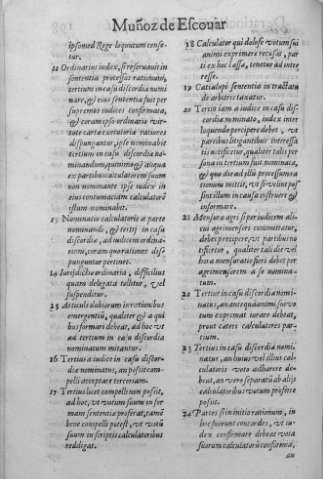 Muñoz de Escouar
ipsomed Rege loquutum cense-
tur.
12 Ordinarius iudex, si reseruauit in
sententia processus ratiocinij,
tertium in casu discordia nomi-
nare, & eius sententia fuit per
supremos iudices confirmata,
& coram ipso ordinario
rationes
dispungantur, ipse nominabit
tertium in casu discordia no-
minandum, quinimo & aliquẽ
ex partibus calculatorem suum
non nominante ipse iudex in
eius contumaciam calculatorẽ
etiam nominabit.
13 Nominatio calculatoris à parte
nominandi, & tertij in casu
discordia, ad iudicem ordina-
rium, coram quo rationes dis-
punguntur pertinet.
14 Iurisdictio ordinaria, difficilius
quam delegata tollitur, vel
suspenditur.
15 Articuli dubiorum in rationibus
emergentiũ, qualiter & a qui
bus formari debeat, ad hoc vt
ad tertium in casu discordia
nominatum mittantur.
16 Tertius a iudice in casu discor-
dia nominatus, an possit com-
pelli acceptare tertiariam.
17 Tertius licet compelli non possit,
ad hoc, vt votum suum in for-
mam sententia proferat, tamẽ
bene compelli potest, vt votũ
suum in scriptis calculatoribus
reddigat.
18 Calculator qui de suo voto sui
animi exprimere recusat, par-
ti ex hoc lassa, tenetur ad inte-
resse.
19
de arbitris taxatur.
20 Tertij iam a iudice in casu dis-
cordia nominato, iudex inter
loquendo percipere debet, vt
partibus litigantibus interessa
tis notificetur, qualiter talis per
sona in tertium fuit nominata,
& quo die ad illũ processum ra
tionum mittit, vt si velint pos
sint illum in causa instruere &
informare.
21 Mensura agri si per iudicem ali-
cui agrimensori committatur,
debet percipere, vt partibus no
tificetur, qualiter tali die vel
hora mensuratio fieri debet per
agrimensorem à se nomina-
tum.
22 Tertius in casu discordia nomi-
natus, an antequam suum vo-
tum exprimat iurare debeat,
prout cæteri calculatores par-
tium.
23 Tertius in casu discordia nomi-
natus, an huius vel illius cal-
culatoris voto adhærere de-
beat, an vero separatũ ab alijs
calculatoribus votum proferre
possit.
24 Partes si in initio rationum, in
hoc fuerint concordes, vt ter-
tius confirmare debeat vota
suorum calculatorũ conformia,
an